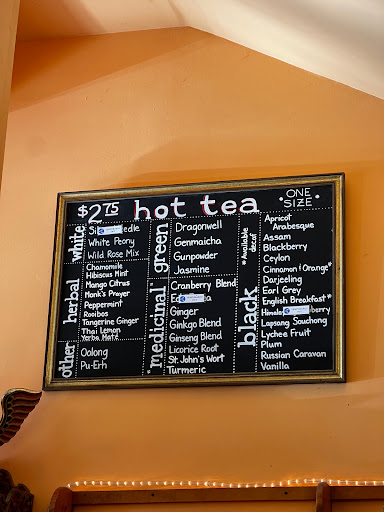 $2.75 hot tea ONE SIZE
white
White Peony
Wild Rose Mix
herbal
Chamomile
Hibiscus Mint
Mango Citrus
Monk's Prayer
Peppermint
Rooibos
Tangerine Ginger
Thai Lemon
Yerba Maté
other
Oolong
Pu-Erh
green
Dragonwell
Genmaicha
Gunpowder
Jasmine
"medicinal"
Cranberry Blend
Ginger
Ginkgo Blend
Ginseng Blend
Licorice Root
St. John's Wort
Turmeric
black
*Available decaf
Apricot
Arabesque
Assam
Blackberry
Ceylon
Cinnamon & Orange*
Darjeeling
Earl Grey
English Breakfast*
Lapsang Souchong
Lychee Fruit
Plum
Russian Caravan
Vanilla